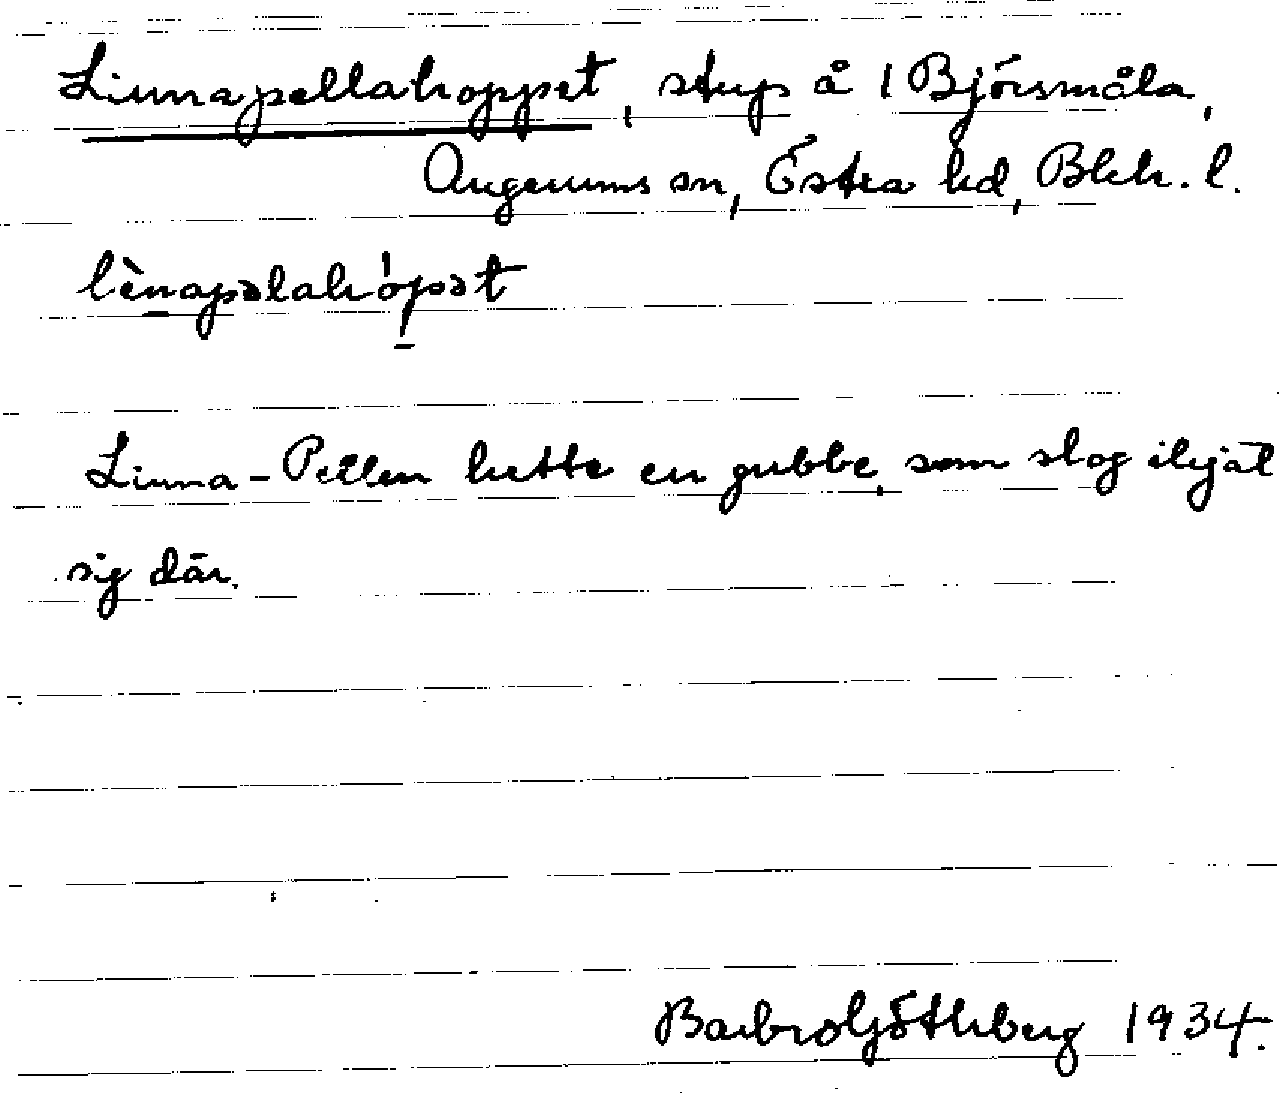 Linnapellahoppet, stup å 1 Björsmåla,
Augerums sn, Östra hd, Blek. l.
lènapəlahópət
Linna-Pellen hette en gubbe, som slog ihjäl
sig där.
Barbro Göthberg 1934.